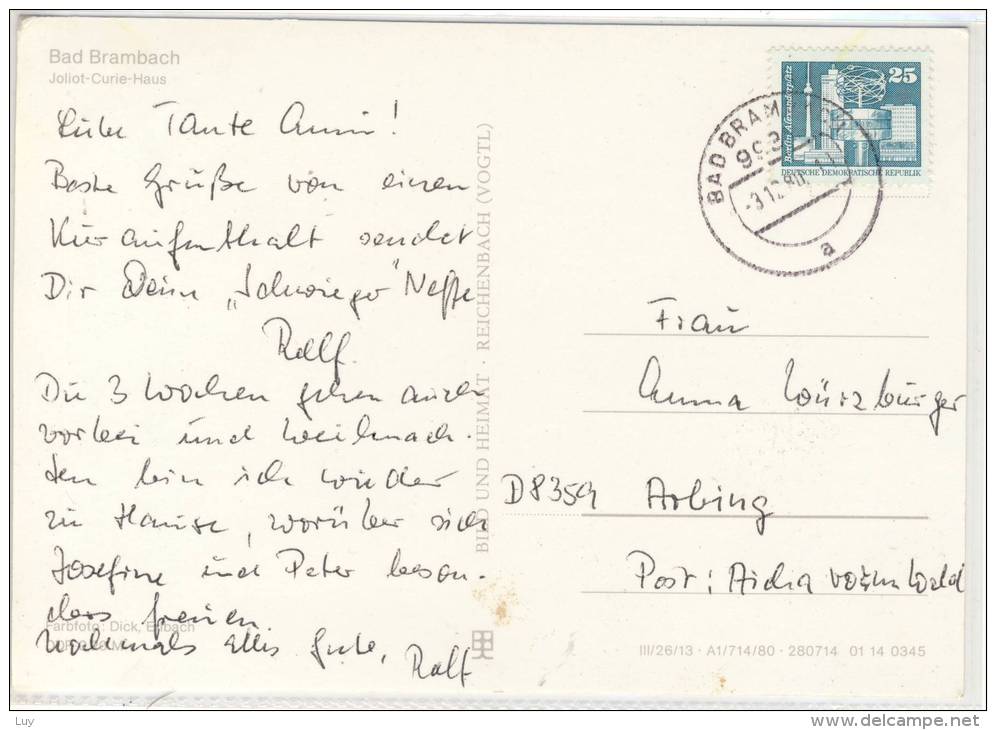 Bad Brambach
Joliot-Curie-Haus
Liebe Tante Anni!
Beste Grüße von einem
Kuraufenthalt sendet
Dir Dein „Schwieger“ Neffe
Ralf.
Die 3 Wochen gehen auch
vorbei und Weihnach-
ten bin ich wieder
zu Hause, worüber sich
Josefine und Peter beson-
ders freuen.
Nochmals Alles Gute,
Ralf
Farbfoto: Dick, Erlbach
BILD UND HEIMAT · REICHENBACH (VOGTL)
25
Berlin Alexanderplatz
DEUTSCHE DEMOKRATISCHE REPUBLIK
BAD BRAM
993
-3.12.80
a
Frau
Anna Würzburger
D8359 Arbing
Post: Aicha vorm Wald
III/26/13 · A1/714/80 · 280714 01 14 0345
Luy
www.delcampe.net